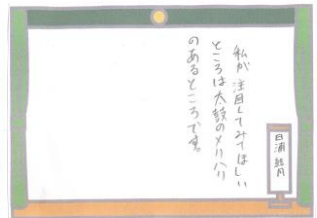 私が注目してみてほしい
ところは太鼓のメリハリ
のあるところです。
日浦 結月